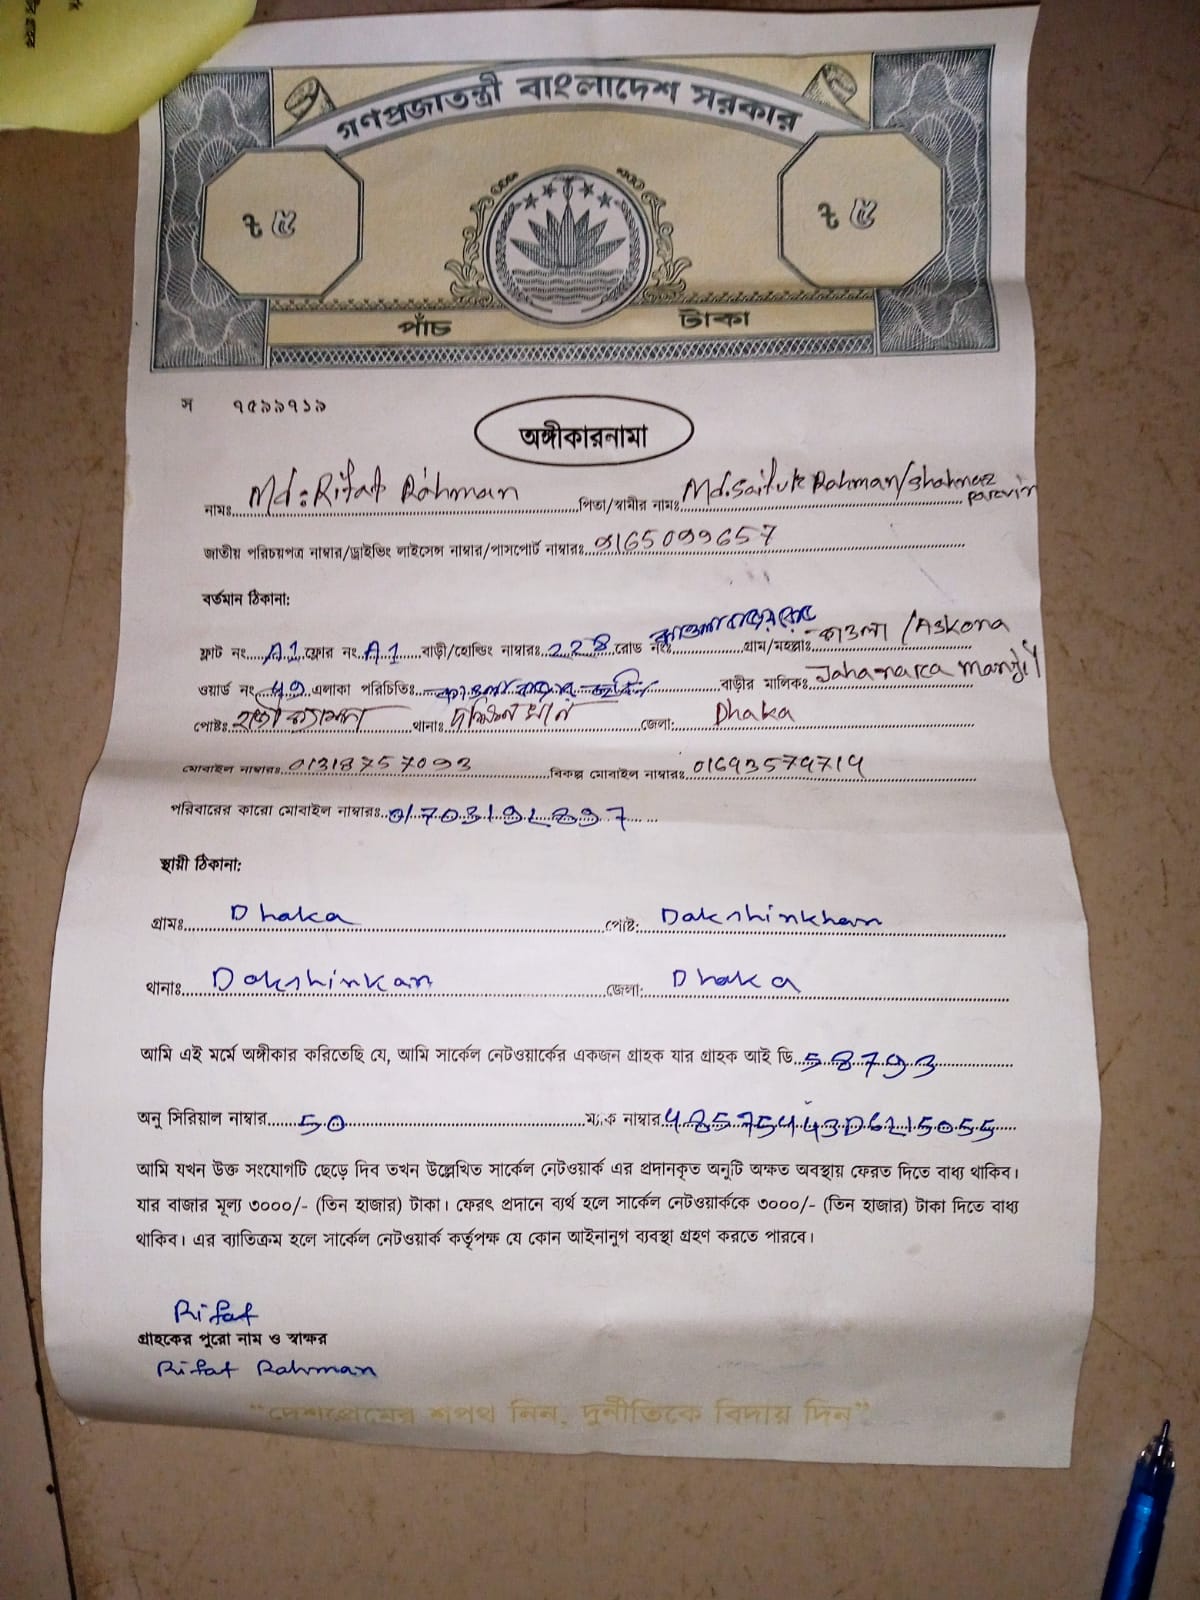 গণপ্রজাতন্ত্রী বাংলাদেশ সরকার
৳ ৫ ৳ ৫
পাঁচ টাকা
স ৭৫৯৯৭১৯
অঙ্গীকারনামা
নামঃ Md: Rifat Rahman পিতা/স্বামীর নামঃ Md. Saifuk Rahman/Shahnaz
parvin
জাতীয় পরিচয়পত্র নাম্বার/ড্রাইভিং লাইসেন্স নাম্বার/পাসপোর্ট নাম্বারঃ 9165099657
বর্তমান ঠিকানা:
ফ্লাট নং A1 ফ্লোর নং A1 বাড়ী/হোল্ডিং নাম্বারঃ 228 রোড নং গ্রাম/মহল্লাঃ কাওলা /Askona
ওয়ার্ড নং 49 এলাকা পরিচিতিঃ কাওলা বাজার বাড়ীর মালিকঃ Jahanarca Manjil
পোষ্টঃ থানাঃ দক্ষিনখান জেলা: Dhaka
মোবাইল নাম্বারঃ 01318757093 বিকল্প মোবাইল নাম্বারঃ 01693579714
পরিবারের কারো মোবাইল নাম্বারঃ
স্থায়ী ঠিকানা:
গ্রামঃ Dhaka পোষ্ট: Dakshinkhan
থানাঃ Dakshinkan জেলা: Dhaka
আমি এই মর্মে অঙ্গীকার করিতেছি যে, আমি সার্কেল নেটওয়ার্কের একজন গ্রাহক যার গ্রাহক আই ডি 58793
অনু সিরিয়াল নাম্বার 50 ম্যাক নাম্বার
আমি যখন উক্ত সংযোগটি ছেড়ে দিব তখন উল্লেখিত সার্কেল নেটওয়ার্ক এর প্রদানকৃত অনুটি অক্ষত অবস্থায় ফেরত দিতে বাধ্য থাকিব।
যার বাজার মূল্য ৩০০০/- (তিন হাজার) টাকা। ফেরৎ প্রদানে ব্যর্থ হলে সার্কেল নেটওয়ার্ককে ৩০০০/- (তিন হাজার) টাকা দিতে বাধ্য
থাকিব। এর ব্যাতিক্রম হলে সার্কেল নেটওয়ার্ক কর্তৃপক্ষ যে কোন আইনানুগ ব্যবস্থা গ্রহণ করতে পারবে।
Rifat
গ্রাহকের পুরো নাম ও স্বাক্ষর
Rifat Rahman
“দেশপ্রেমের শপথ নিন, দুর্নীতিকে বিদায় দিন”